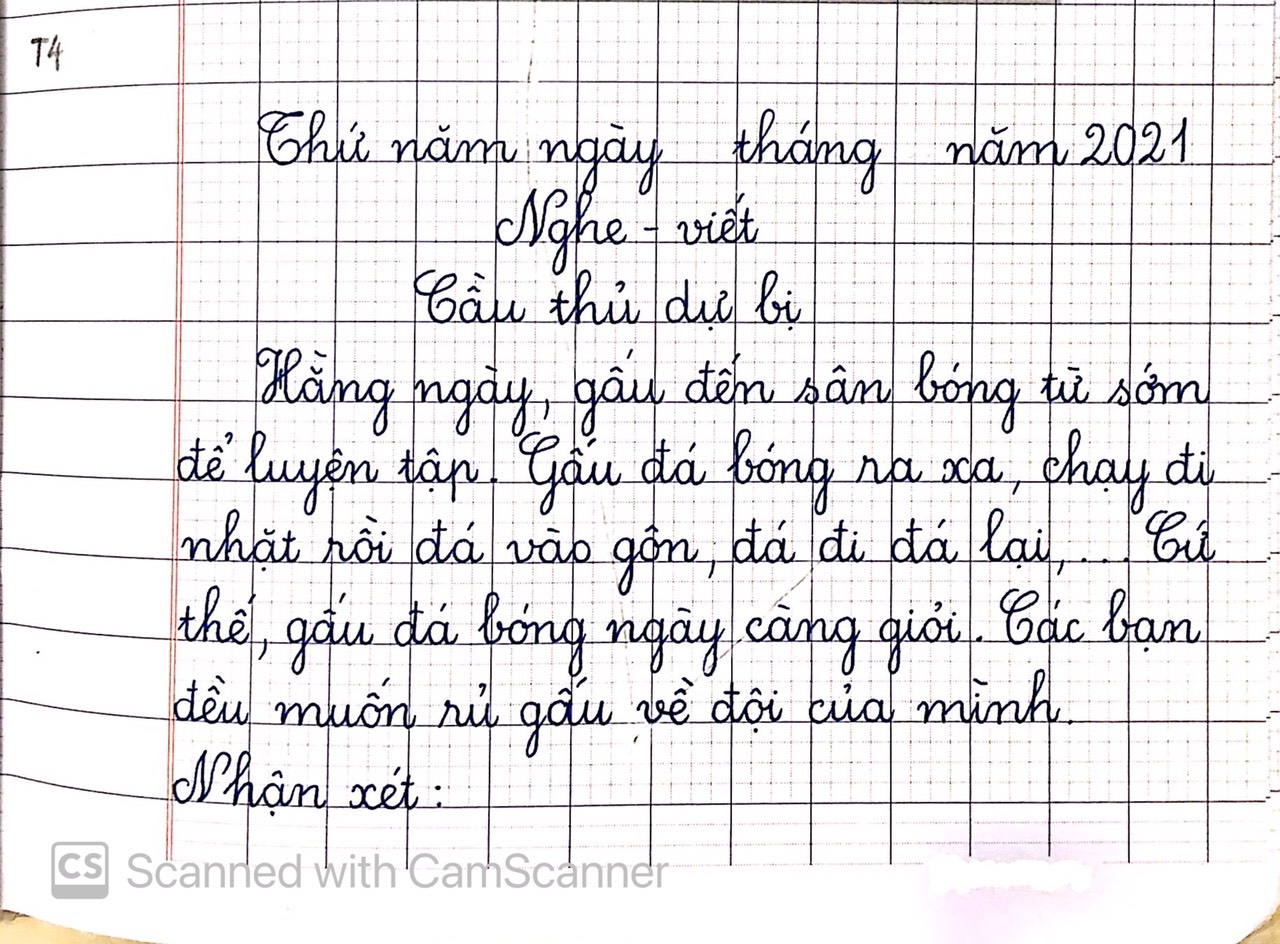 T4
Thứ năm ngày tháng năm 2021
Nghe - viết
Cầu thủ dự bị
Hằng ngày, gấu đến sân bóng từ sớm
để luyện tập. Gấu đá bóng ra xa, chạy đi
nhặt rồi đá vào gôn, đá đi đá lại,... Cứ
thế, gấu đá bóng ngày càng giỏi. Các bạn
đều muốn rủ gấu về đội của mình.
Nhận xét:
CS Scanned with CamScanner